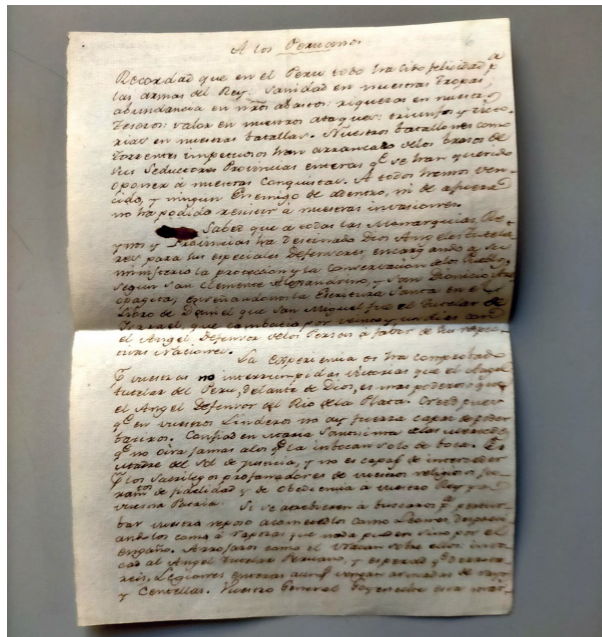 A los Peruanos
Recordad que en el Peru todo ha sido felicidad a
las armas del Rey: Sanidad en nuestras Tropas;
abundancia en nros abastos: riquezas en nuestros
Tesoros: valor en nuestros ataques: triunfos y victo-
rias en nuestras batallas. Nuestros batallones como
torrentes impetuosos han arrancado delos brazos de
sus Seductores Provincias enteras qe se han querido
oponer a nuestras Conquistas. A todos hemos ven-
cido, y ningun Enemigo de adentro, ni de afuera
no ha podido resistir à nuestras invasiones.
Sabed que a todas las Monarquias, Rey-
nos y Provincias ha destinado Dios Angeles tutela-
res para sus especiales Defensores, encargando a su
ministerio la proteccion y la Conservacion delos Pueblos,
segun San Clemente Alexandrino, y San Dionicio Are-
opagita; enseñandonos la Escritura Santa en el
Libro de Daniel que San Miguel fue el tutelar de
Israel, que combatió por veinte y un dias con
el Angel Defensor delos Persas à favor de sus respec-
tivas Naciones.
La experiencia os ha comprobado
pr vuestras no interrumpidas victorias que el Angel
tutelar del Peru, delante de Dios, es mas poderoso que
el Angel Defensor del Rio de la Plata. Creed pues
qe en vuestros Linderos no ay fuerza capas de poder
batiros. Confiad en Maria Santisima delas Mercedes
qe no oira jamas alos qe la inbocan solo de boca. Es
Madre del Sol de justicia, y no es capas de interceder
pr los sacrilegos profanadores de vuestros religiosos ju-
ramtos de fidelidad y de obediencia a vuestro Rey y a
vuestra Patria. Si se atrebieren a buscaros pa pertur-
bar vuestro reposo acometedlos como Leones,
como à raposas que nada pueden sino por el
engaño. Arrojaros como el sobre ellos: invo-
cad al Angel tutelar Peruano, y esperad qe derrota-
reis Legiones enteras aunqe vengan armadas de rayos
y Centellas. Vuestro General